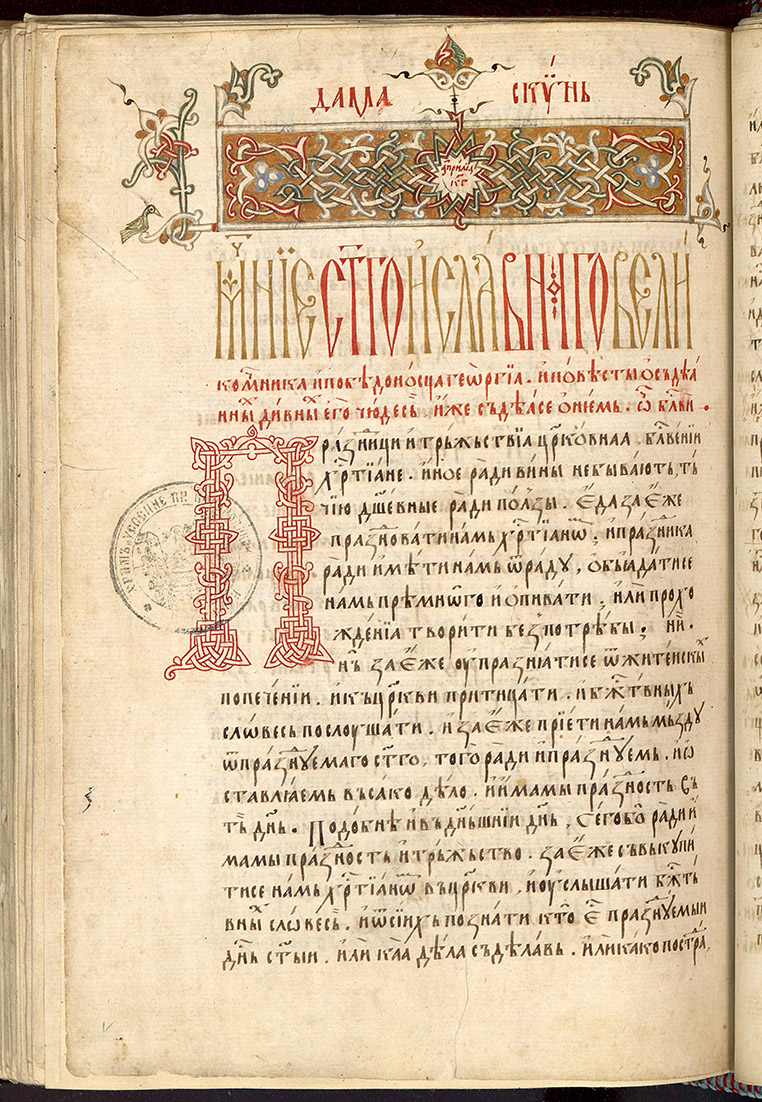 дама скꙋ́нь
а҆приліа кг
Мꙋ҃нїе ст҃го и҆ сла́внаго вели
комⷱ҇ника и҆ побѣдоно́сца геѡ́ргїа. и҆ по́вѣсть ѡ҆ съдѣа́
нныⷯ ди́вныⷯ е҆го̀ чю́десь. и҆́же съдѣа́се ѻ҆ не́мь. ѿ бл҃ви.
Пра́зⷣници и҆ трⸯжьствїа цр҃ко́внаа. бл҃ве́нїи
хрⷭ҇тїа́не. и҆но́е ра́ди вины̀ не быва́ють, тъ́
чїю дш҃е́вные ра́ди по́лзы. Е҆да̀ за е҆́же
пра́зⷣновати на́мь хрⷭ҇тїа́нѡⷨ, и҆ пра́зⷣника
ра́ди и҆мѣ́ти на́мь ѿра́дꙋ, ѻ҆б̾ꙗда́тисе
на́мь прѣмно́го и҆ ѻ҆пива́ти, и҆лѝ прохо
жде́нїа твори́ти без̾ потрѣ́бы; нѝ.
нъ̀ за е҆́же оу҆праз̾нꙗ́тисе ѿ жите́нскыⷯ
попече́нїи. и҆ къ цр҃кви прити́цати. и҆ бжⷭ҇твныхъ
сло́весь послоу́шати. и҆ за е҆́же прїе́ти на́мь мъ́здꙋ
ѿ пра́зⷣнꙋемаго ст҃го, того̀ ра́ди и҆ пра́зⷣнꙋемь. и҆ ѡ҆
ставлꙗ́емь въса́ко дѣ́ло. и҆ и҆мамы пра́зⷣность въ
тъ̀ дн҃ь. Подо́бнѣ и҆ въ дн҃ь́шнїи дн҃ь, сего̀ бо ра́ди и҆
мамы пра́зⷣность и҆ трⸯжьство. за е҆́же съвькꙋпи́
тисе на́мь хрⷭ҇тїа́нѡⷨ въ цр҃кви, и҆ оу҆слы́шати бжⷭ҇т
вныⷯ слове́сь. и҆ ѿ си́ихь позна́ти кто̀ е҆ⷭ҇ пра́зⷣнꙋемыи
дн҃ь ст҃ыи. и҆лѝ каа̀ дѣ́ла съдѣ́лавь. и҆лѝ ка́ко постра́,